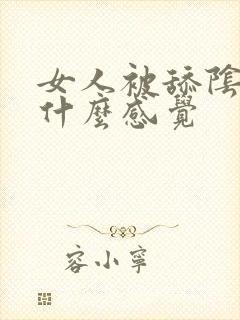 女人被舔陰
什麼感覺
容小寧